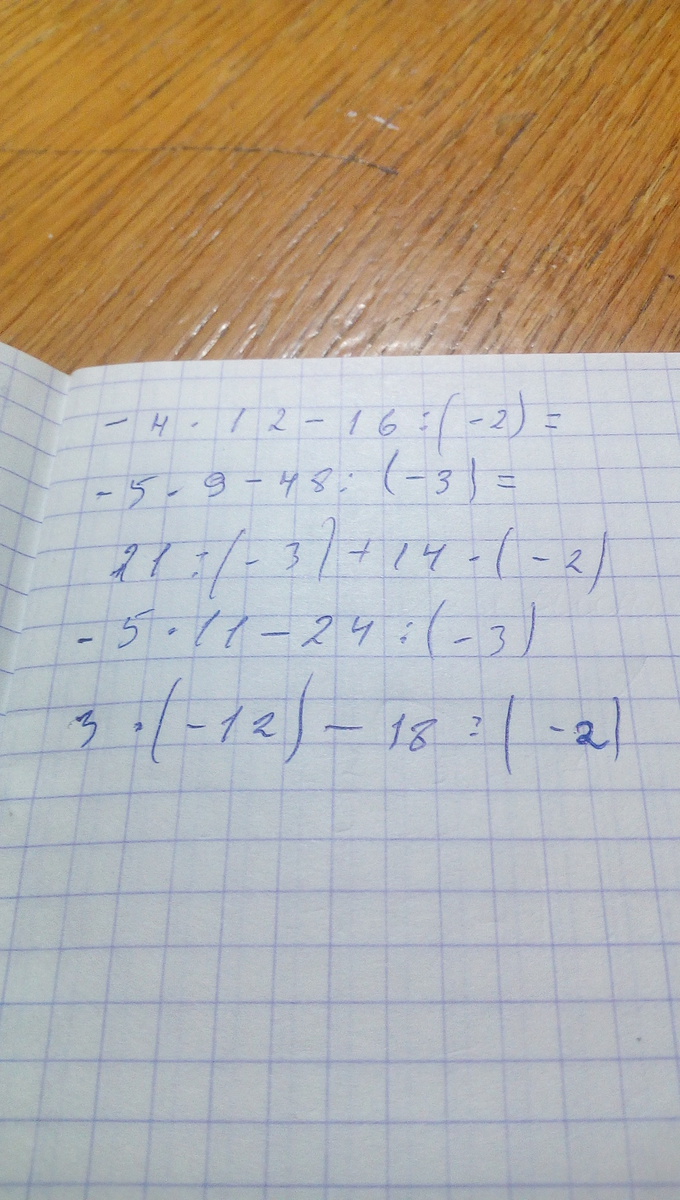 -4·12-16:(-2)=
-5·9-48:(-3)=
21:(-3)+14·(-2)
-5·11-24:(-3)
3·(-12)-18:(-2)